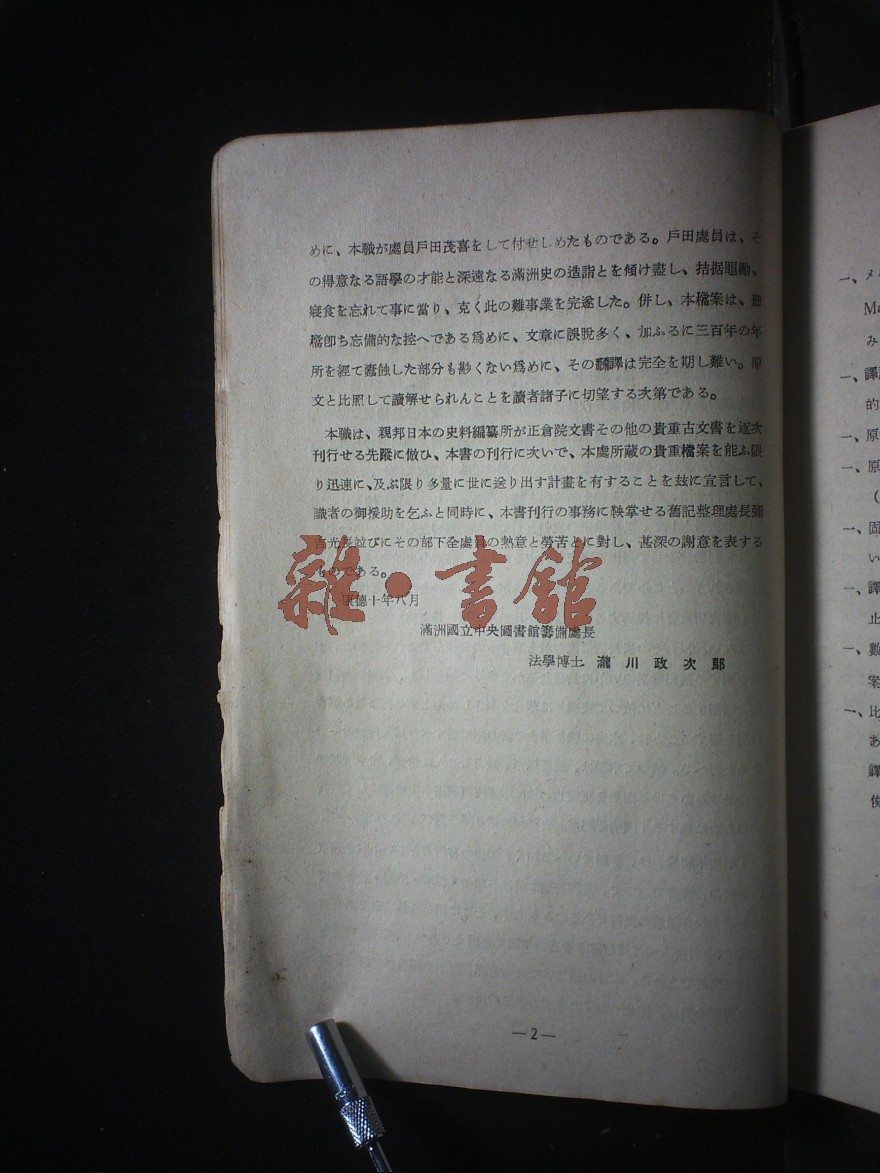 めに、本職が處員戸田茂喜をして付せしめたものである。戸田處員は、そ
の得意なる語學の才能と深遠なる滿洲史の造詣とを傾け盡し、拮据黽勉、
寢食を忘れて事に當り、克く此の難事業を完遂した。併し、本檔案は、
檔卽ち忘備的な控へである爲めに、文章に誤脫多く、加ふるに三百年の年
所を經て蠹蝕した部分も尠くない爲めに、その飜譯は完全を期し難い。原
文と比照して讀解せられんことを讀者諸子に切望する次第である。
本職は、親邦日本の史料編纂所が正倉院文書その他の貴重古文書を逐次
刊行せる先蹤に倣ひ、本書の刊行に次いで、本處所藏の貴重檔案を能ふ限
り迅速に、及ぶ限り多量に世に送り出す計畫を有することを玆に宣言して、
識者の御援助を乞ふと同時に、本書刊行の事務に鞅掌せる舊記整理處長彌
吉光長並びにその部下全處員の熱意と勞苦とに對し、甚深の謝意を表する
ものである。
雜·書館
康德十年八月
滿洲國立中央圖書館籌備處長
法學博士 瀧川政次郞
—2—
一、メ
Ma
み
一、譯
的
一、原
一、原
(
一、固
い
一、譯
止
一、數
案
一、比
あ
譯
俟